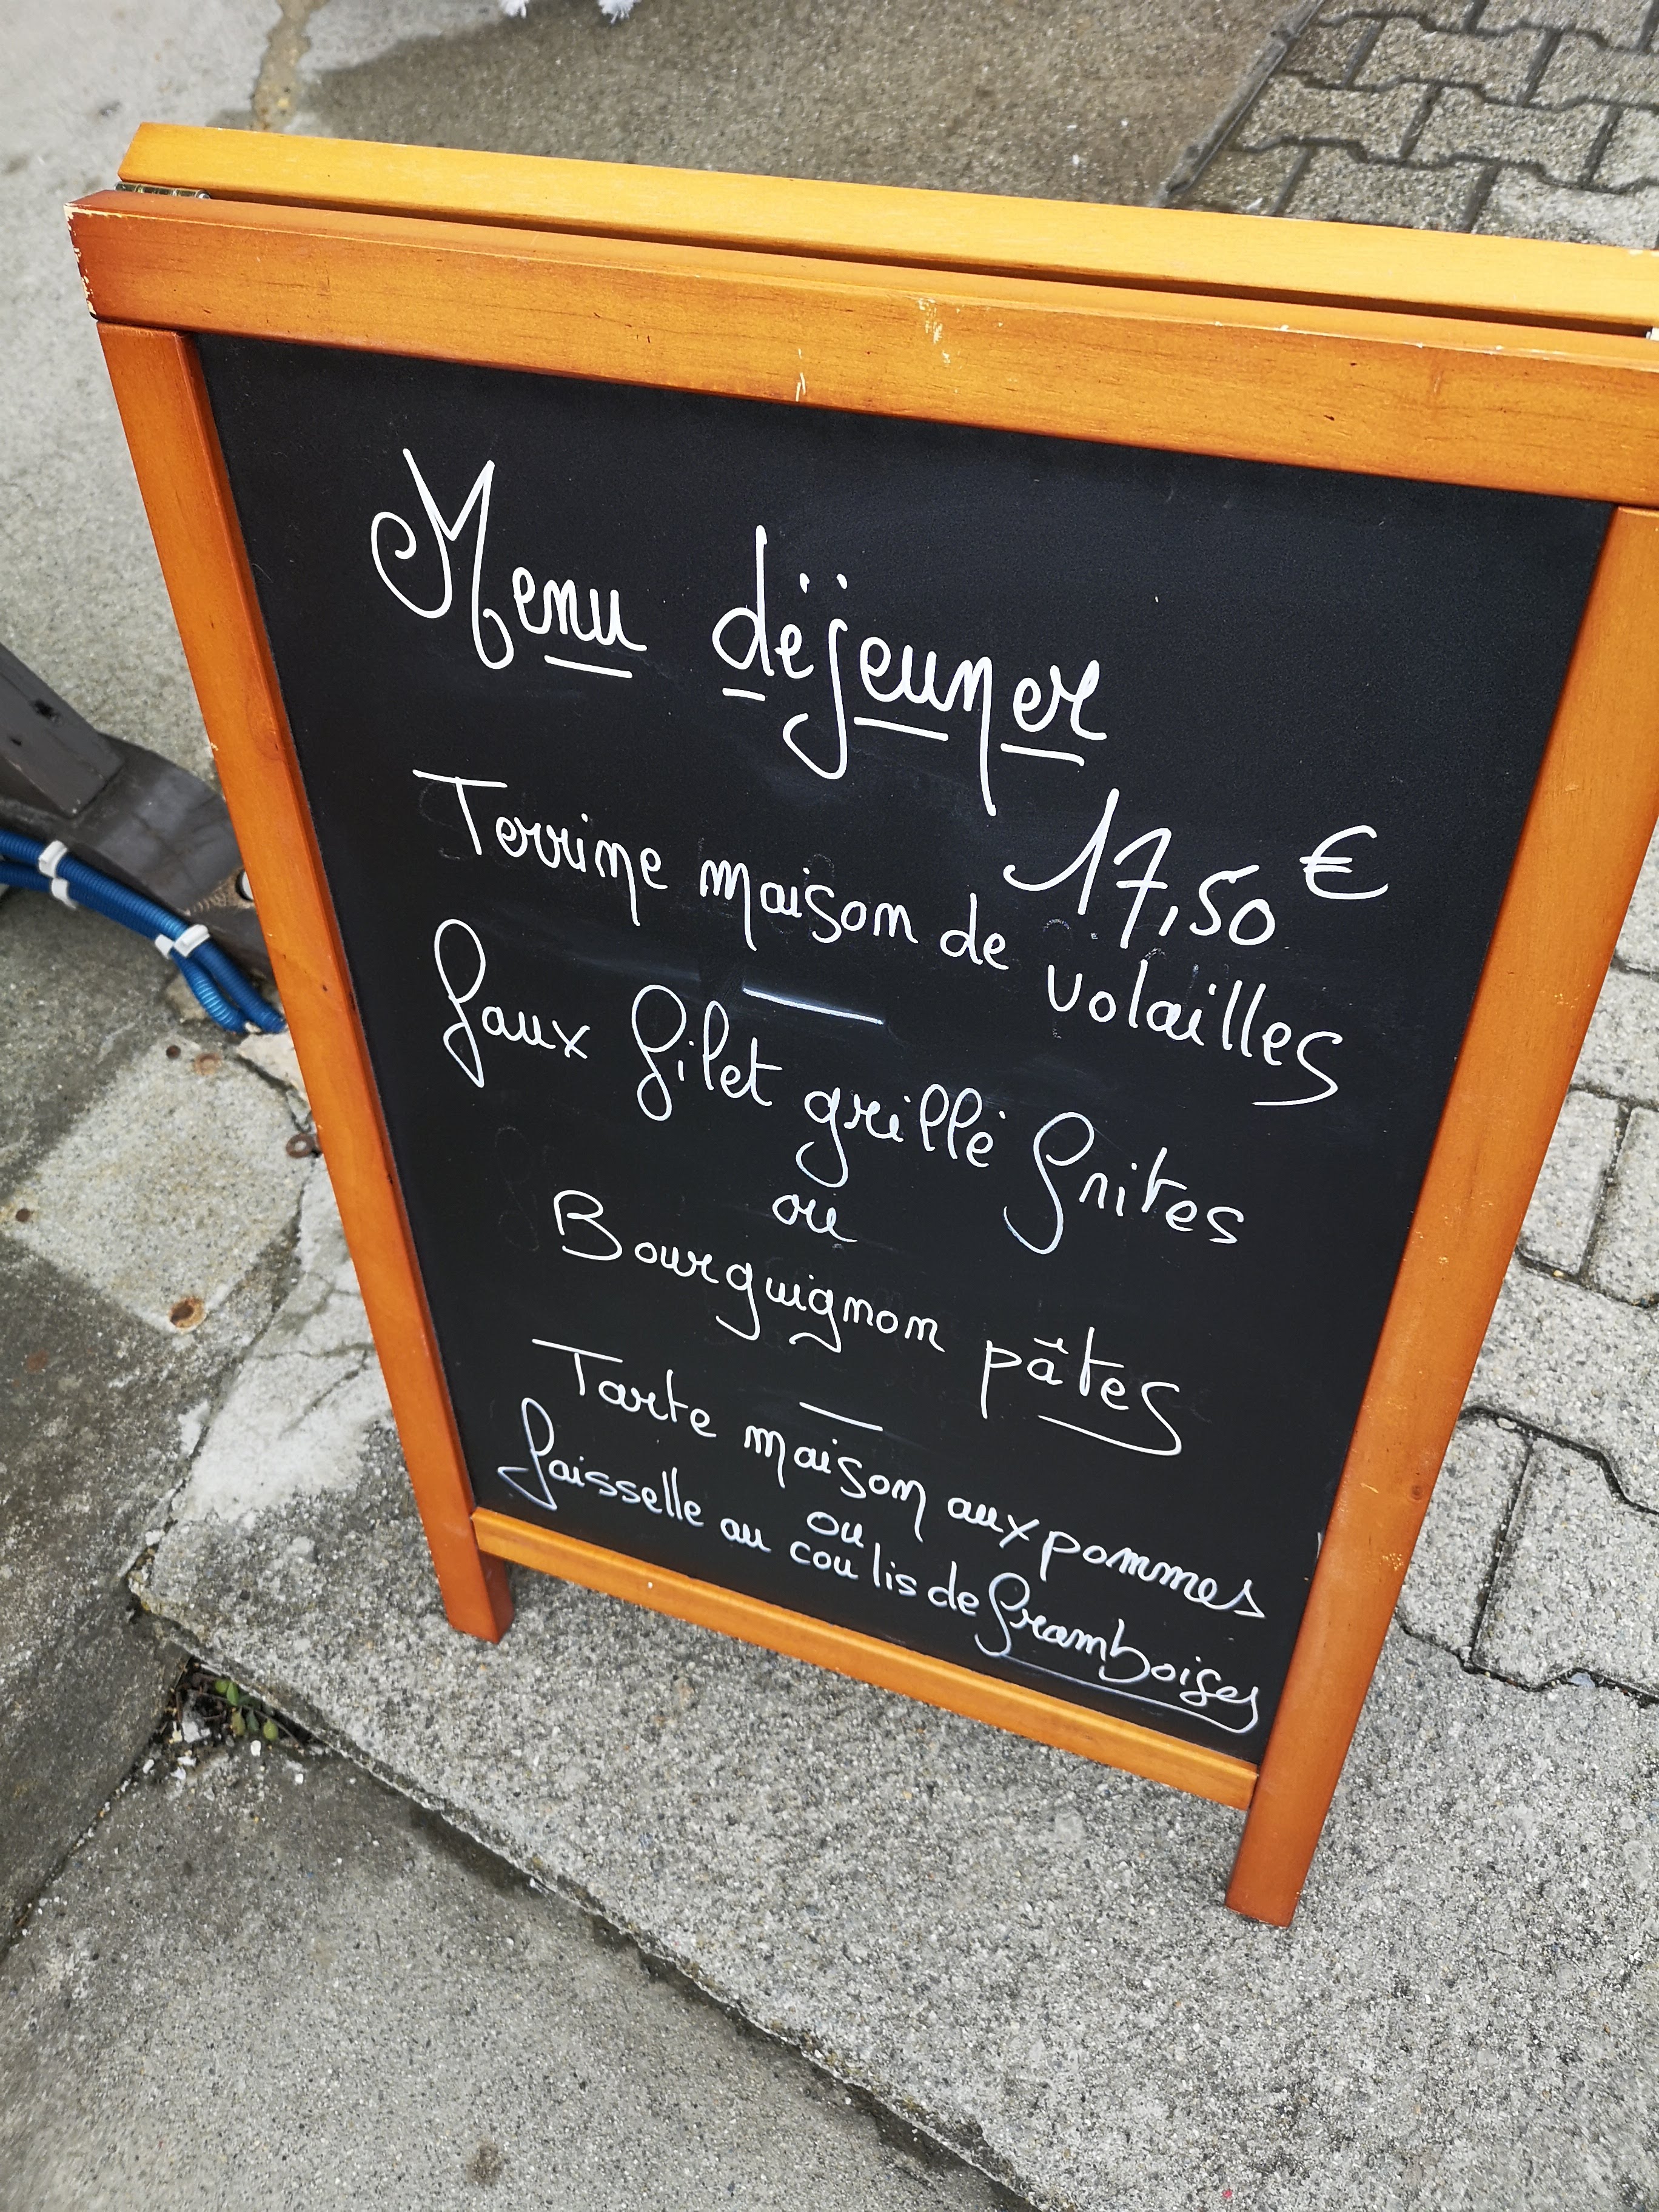 Menu déjeuner
17,50 €
Terrine maison de volailles
faux filet grillé frites
ou
Bourguignon pâtes
Tarte maison aux pommes
ou
faisselle au coulis de framboises